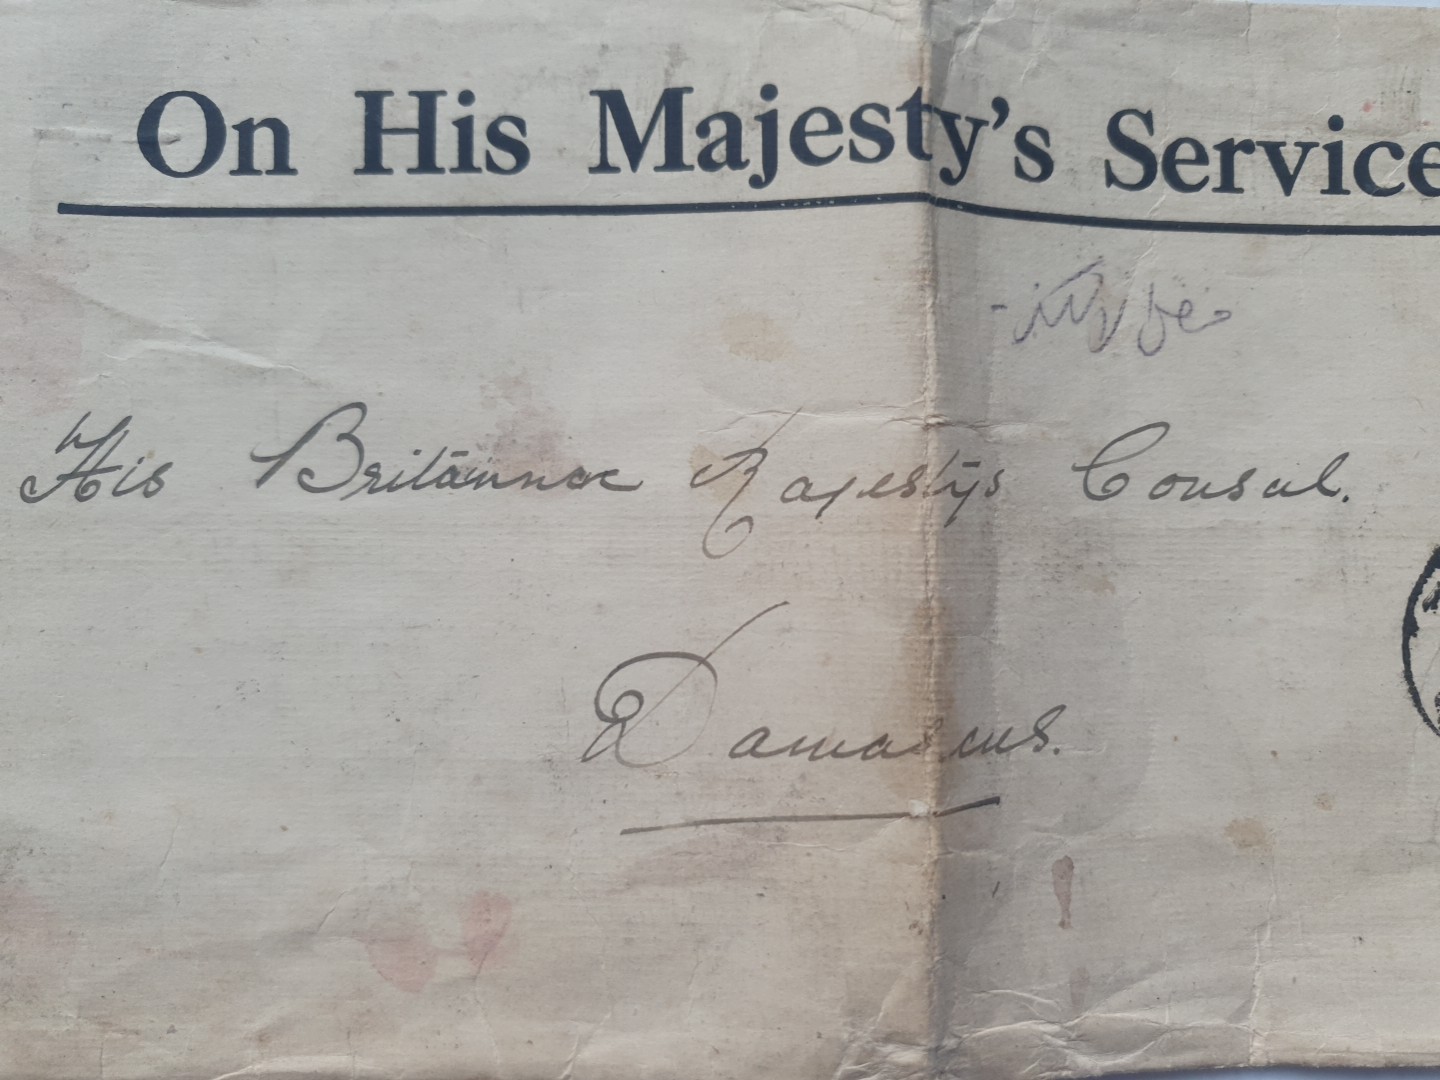 On His Majesty's Service
His Britannic Majestys Consul.
Damascus.